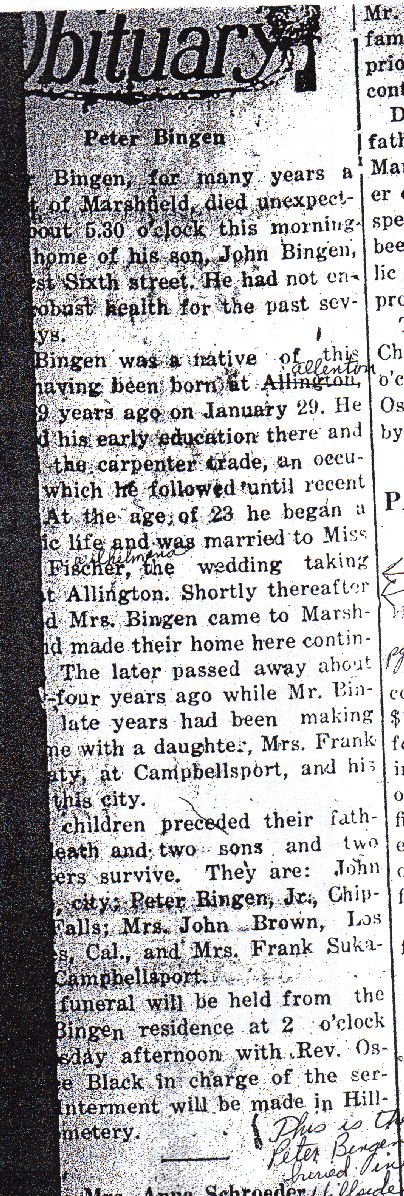 Obituary
Peter Bingen
Bingen, for many years a
of Marshfield, died unexpect-
5.30 o'clock this morning
home of his son, John Bingen,
Sixth street. He had not en-
robust health for the past sev-
ys.
Bingen was a native of this
allenton
having been born at Allington,
9 years ago on January 29. He
d his early education there and
the carpenter trade, an occu-
which he followed until recent
At the age of 23 he began a
ic life and was married to Miss
Fischer, the wedding taking
t Allington. Shortly thereafter
d Mrs. Bingen came to Marsh-
nd made their home here contin-
The later passed away about
-four years ago while Mr. Bin-
late years had been making
me with a daughter, Mrs. Frank
aty, at Campbellsport, and his
this city.
children preceded their fath-
eath and two sons and two
ers survive. They are: John
, city; Peter Bingen, Jr., Chip-
Falls; Mrs. John Brown, Los
s, Cal., and Mrs. Frank Suka-
Campbellsport.
funeral will be held from the
Bingen residence at 2 o'clock
sday afternoon with Rev. Os-
e Black in charge of the ser-
Interment will be made in Hill-
metery.
This is th
Peter Bingen
buried in
Hillside
Mrs. Anna Schroeder
Mr.
fam
prio
cont
D
fath
Mar
er
spe
bee
lic
pro
T
Ch
o'c
Os
by
P